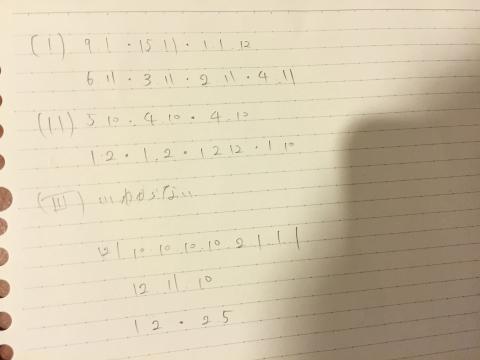 (I) 9 1 · 15 11 · 1 1 12
6 11 · 3 11 · 2 11 · 4 11
(II) 5 10 · 4 10 · 4 10
1 2 · 1 2 · 1 2 12 · 1 10
(III) わからない
12 1 10 10 10 10 2 1 1 1
12 11 10
1 2 · 25